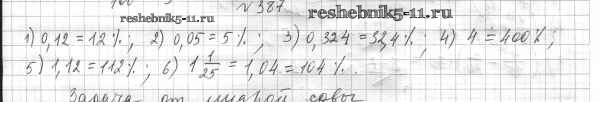 № 387
reshebnik5-11.ru reshebnik5-11.ru
1) 0,12 = 12 %; 2) 0,05 = 5 %; 3) 0,324 = 32,4 %; 4) 4 = 400 %;
5) 1,12 = 112 %; 6) 1 1/25 = 1,04 = 104 %.
Задача от мудрой совы